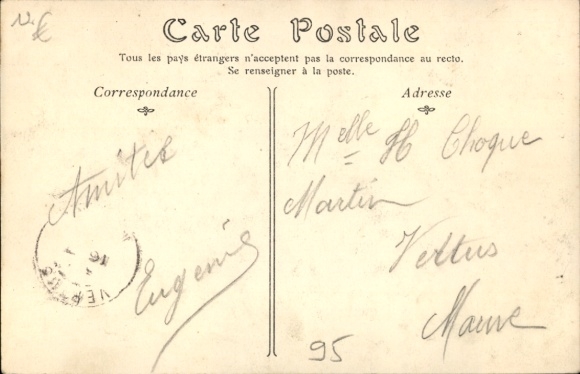 Carte Postale
Tous les pays étrangers n'acceptent pas la correspondance au recto.
Se renseigner à la poste.
Correspondance
Adresse
Amitié
Eugénie
Melle H Choque
Martin
Vertus
Marne
95